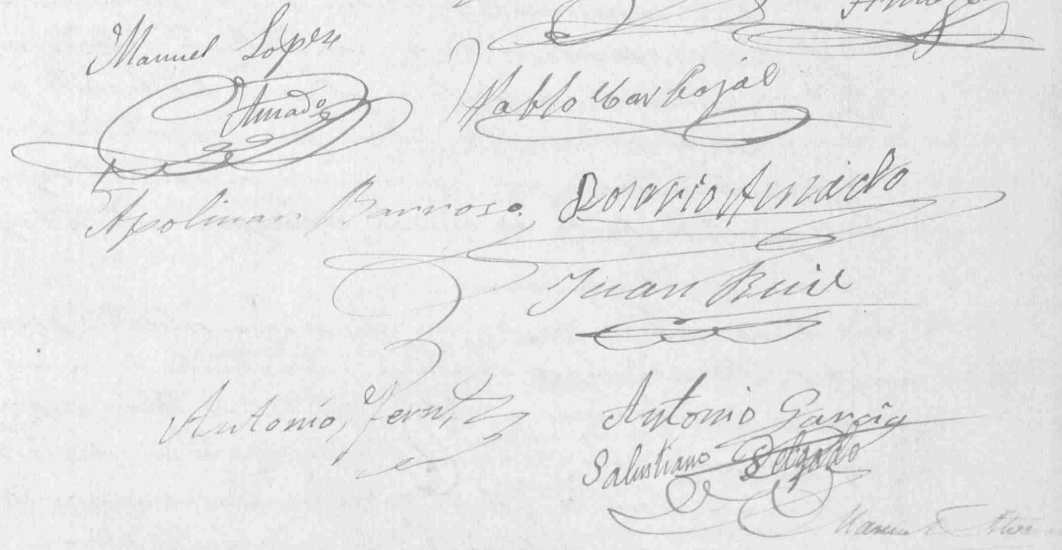 Manuel López
Amado
Pablo Carbajal
Apolinar Barroso
Rosario Amado
Juan Ruil
Antonio, Fern
Antonio Garcia
Salustiano Delgado
Manuel